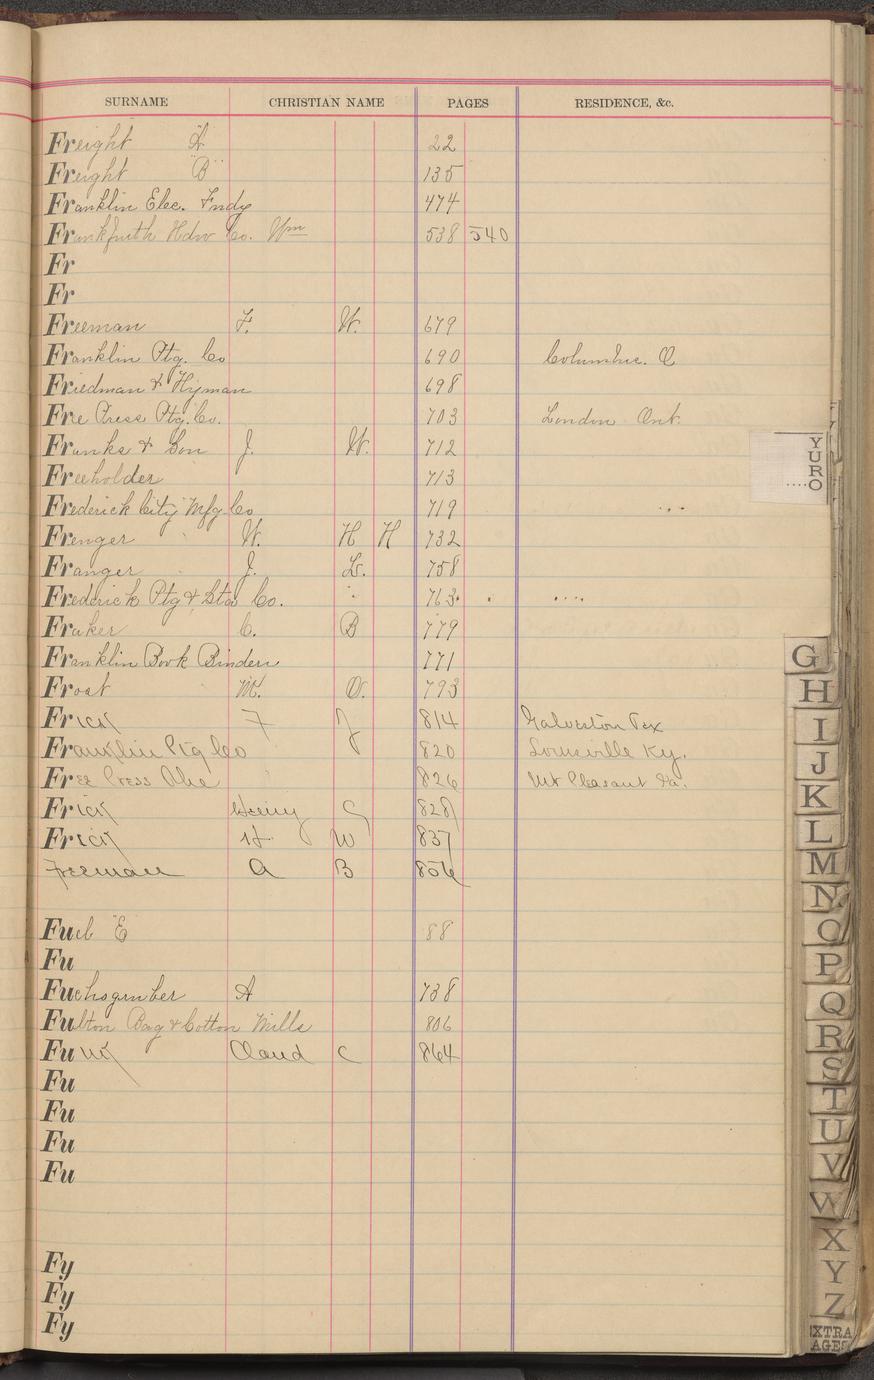 SURNAME CHRISTIAN NAME PAGES RESIDENCE, &c.
Freight "A" 22
Freight "B" 135
Franklin Elec. Fndy 474
Frankfurth Hdw Co. Wm 538 540
Fr
Fr
Freeman F. W. 679
Franklin Ptg. Co 690 Columbus. O
Friedman & Hyman 698
Free Press Ptg. Co. 703 London Ont.
Franks & Son J. W. 712
Freeholder 713
Frederick City Mfg. Co 719
Frenger W. H H 732
Franger J. L. 758
Frederick Ptg & Sta Co. 763
Fraker C. B 779
Franklin Book Bindery 771
Frost M. O. 793
Frick F J 814 Galveston Tex
Franklin Ptg Co 820 Louisville Ky.
Free Press 826 Mt Pleasant
Frick Henry C 828
Frick H W 837
Freeman A B 856
Fuel "E" 88
Fu
Fuchsgruber A 738
Fulton Bag & Cotton Mills 806
Funk Claud C 864
Fu
Fu
Fu
Fu
Fy
Fy
Fy
YURO
G
H
I
J
K
L
M
N
O
P
Q
R
S
T
U
V
W
X
Y
Z
EXTRA
PAGES